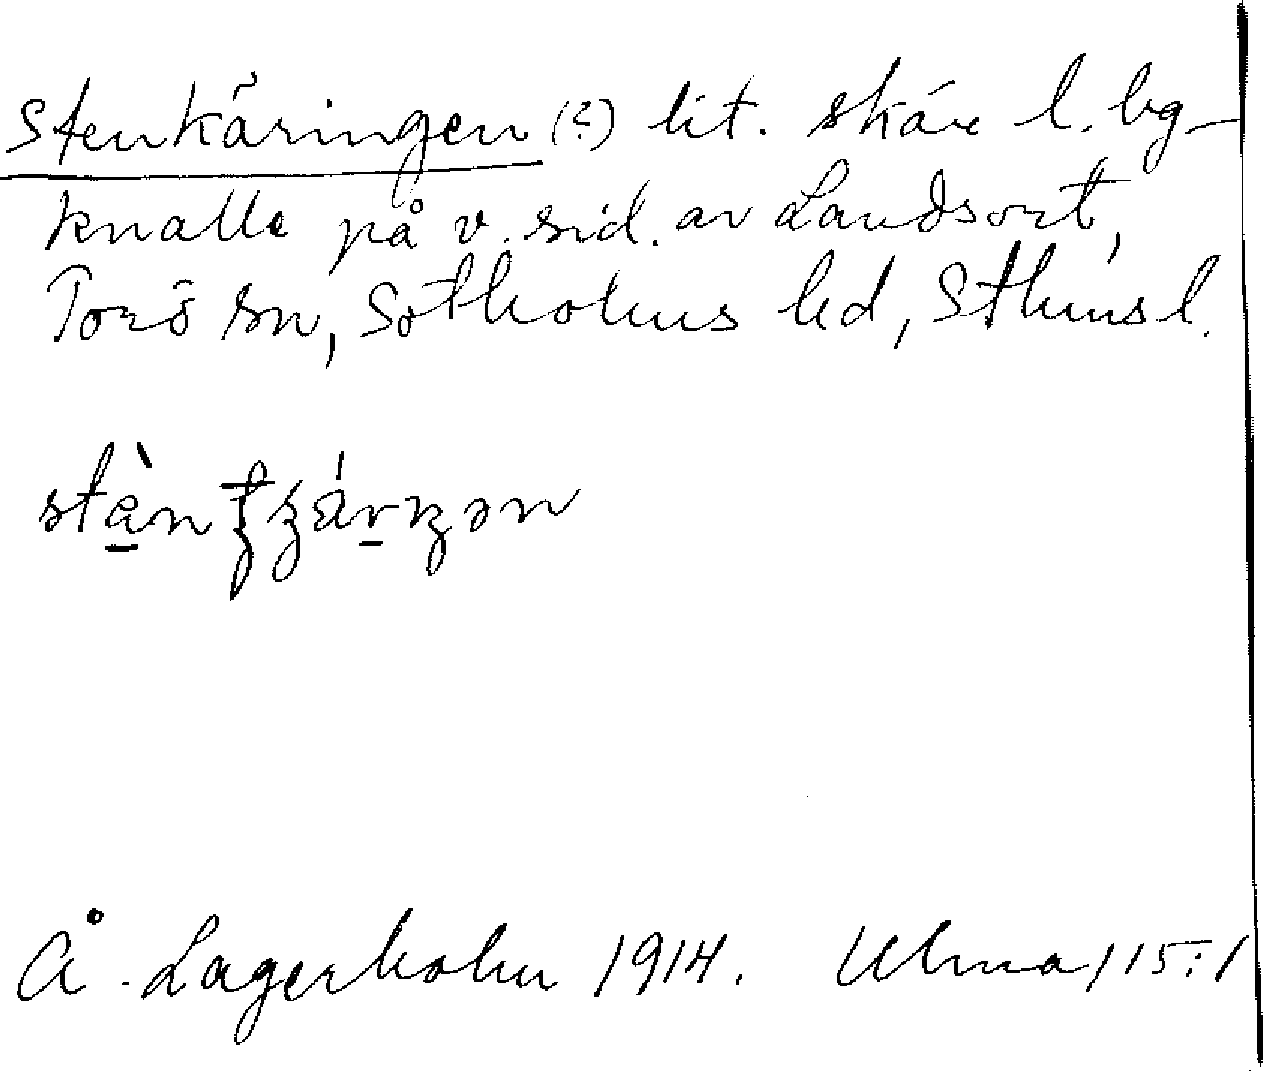 Stenkäringen (?) lit. skär l. bg-
knalle på v. sid. av Landsort,
Torö sn, Sotholms hd, Sthms l.
Å. Lagerholm 1914. Ulma 115:1